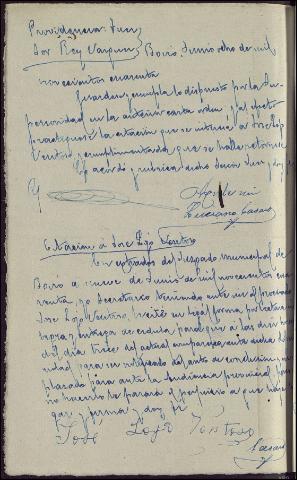 Providencia Juez
Sor Rey Vazquez Boiro, Junio ocho de mil
novecientos cuarenta
Guardese y cumpla lo dispuesto por la Su-
perioridad en la anterior carta orden y al efecto
practiquese la citación que se interesa a José Lojo
Ventoso, y cumplimentada que se halle
Lo acordó y rubrica dicho Señor Juez, y doy fe
Ante mi
Luciano Casais
Citación a José Lojo Ventoso
En estrados del Juzgado municipal de
Boiro a nueve de Junio de mil novecientos cua-
renta, yo Secretario teniendo ante mi al procesado
José Lojo Ventoso, le cité en legal forma, por lectura
copia y entrega de cedula para que a las diez horas
del dia trece del actual comparezca ante dicha
para ser notificado del auto de conclusion y em-
plazado para ante la Audiencia provincial, pues
no hacerlo le parará el perjuicio a que haya lu-
gar y firma y doy fe
José Lojo Ventoso
Casais